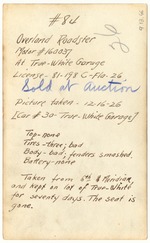 #84
Overland Roadster
Motor #160037
At True-White Garage
License - 81-198 C-Fla-26
Sold at Auction
Picture taken - 12-16-26
[Car #30-True-White Garage]
Top-none
Tires-three; bad
Body-bad; fenders smashed.
Battery-none
Taken from 6th & Meridian,
and kept on lot of True-White
for seventy days. The seat is
gone.